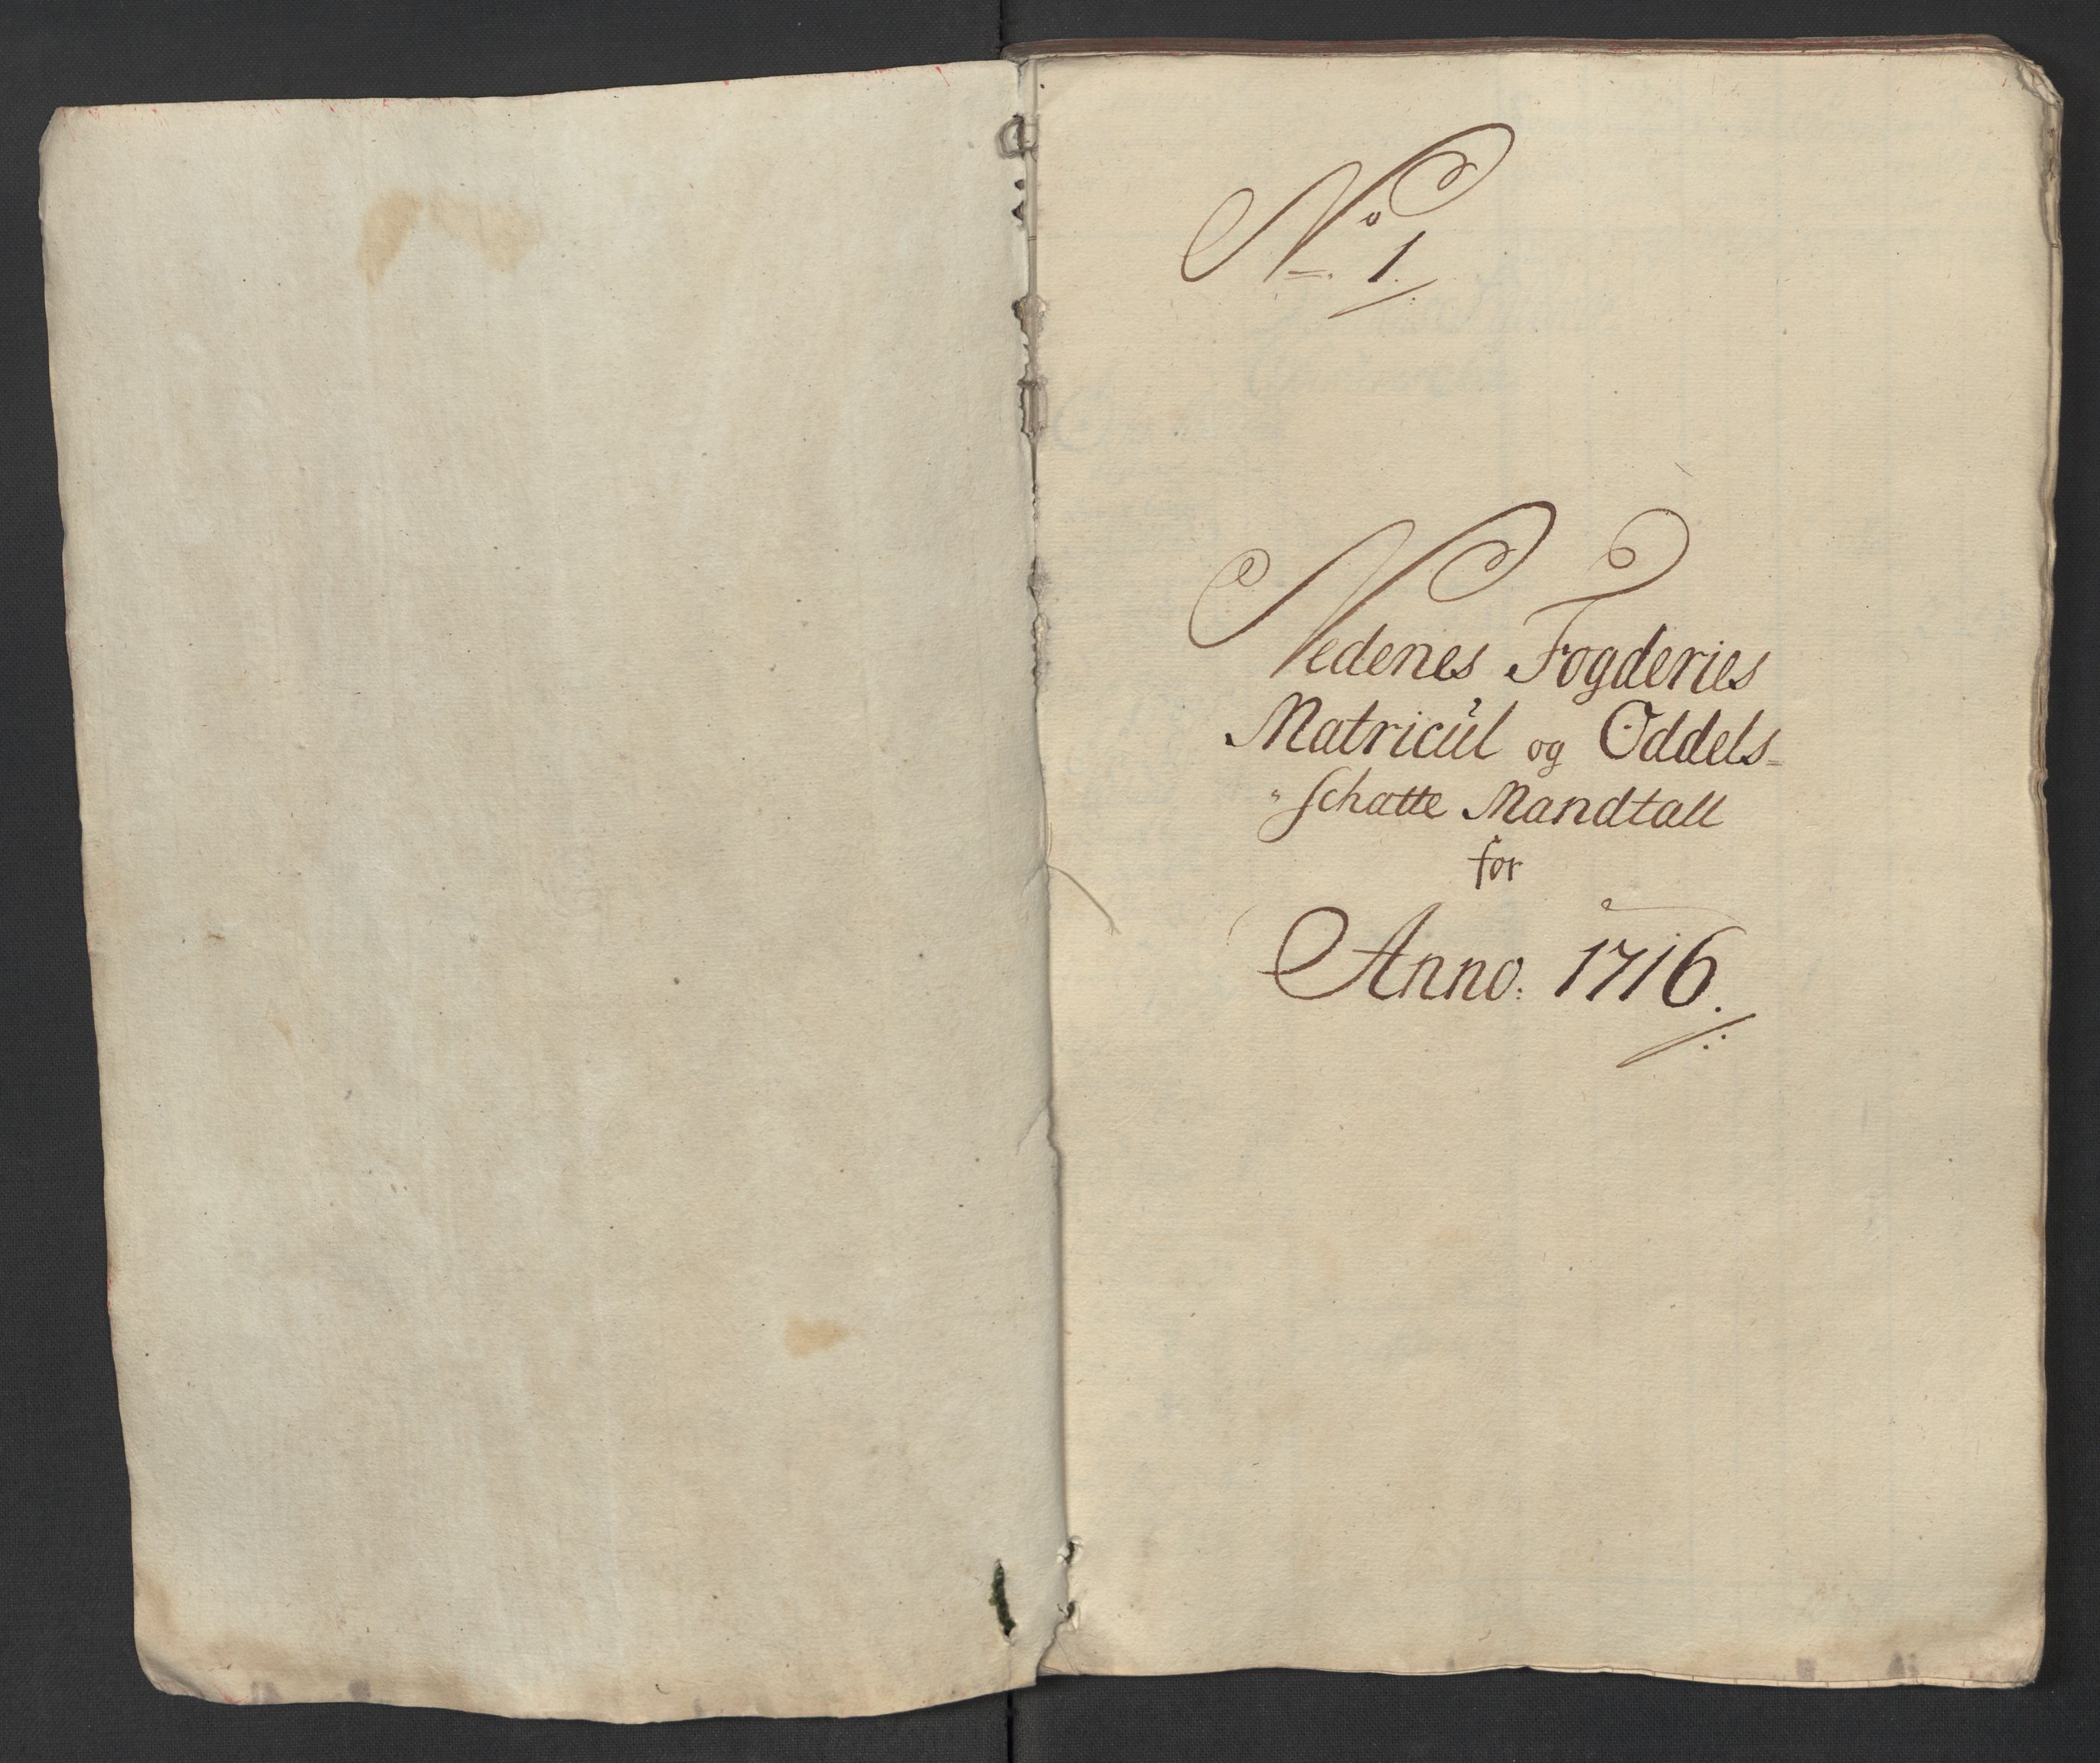 No 1
Nedenes Fogderies
Matricul og Oddels-
schatte Mandtall
for
Anno: 1716.